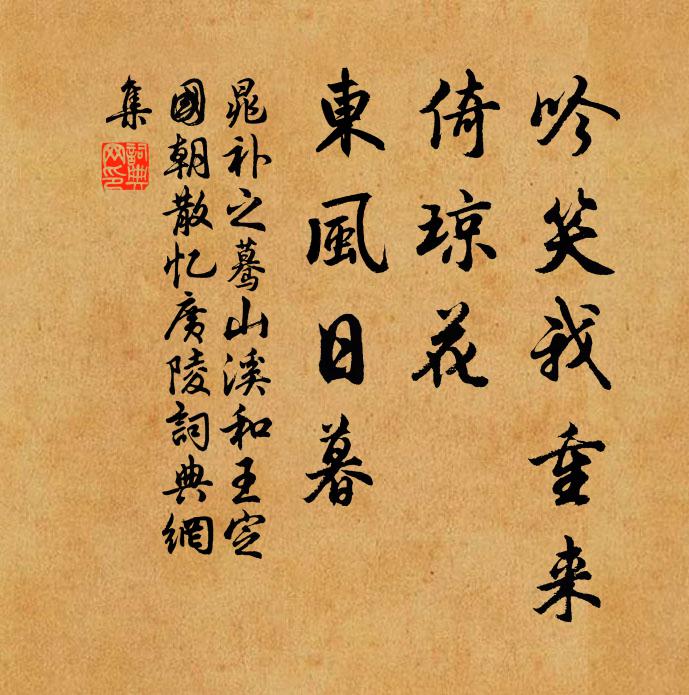 吟笑我重来
倚琼花
東風日暮
晁补之驀山溪和王定
國朝散忆广陵詞典網
集
詞典網印